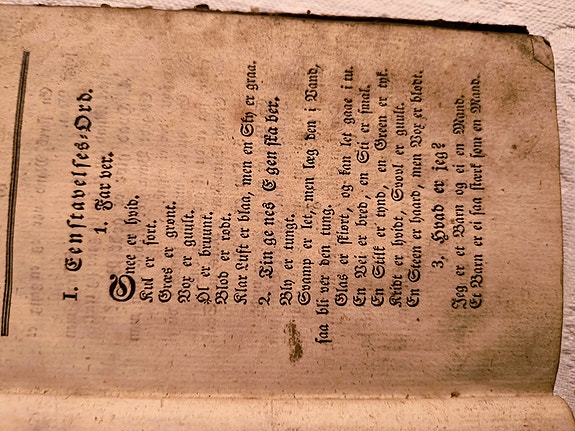 I. Eenstavelses-Ord.
1. Far ver.
Snee er hvid.
Kul er sort.
Græs er grønt.
Vox er guult.
Øl er bruunt.
Blod er rødt.
Klar Luft er blaa, men en Sky er graa.
2. Tin ge nes E gen ska ber.
Bly er tungt.
Svamp er let, men læg den i Vand,
saa bli ver den tung.
Glas er skiørt, og kan let gaae i tu.
En Vei er bred, en Sti er smal.
En Stilk er tynd, en Green er tyk.
Kridt er hvidt, Svovl er guult.
En Steen er haard, men Vox er blødt.
3. Hvad er jeg?
Jeg er et Barn og ei en Mand.
Et Barn er ei saa stærk som en Mand.